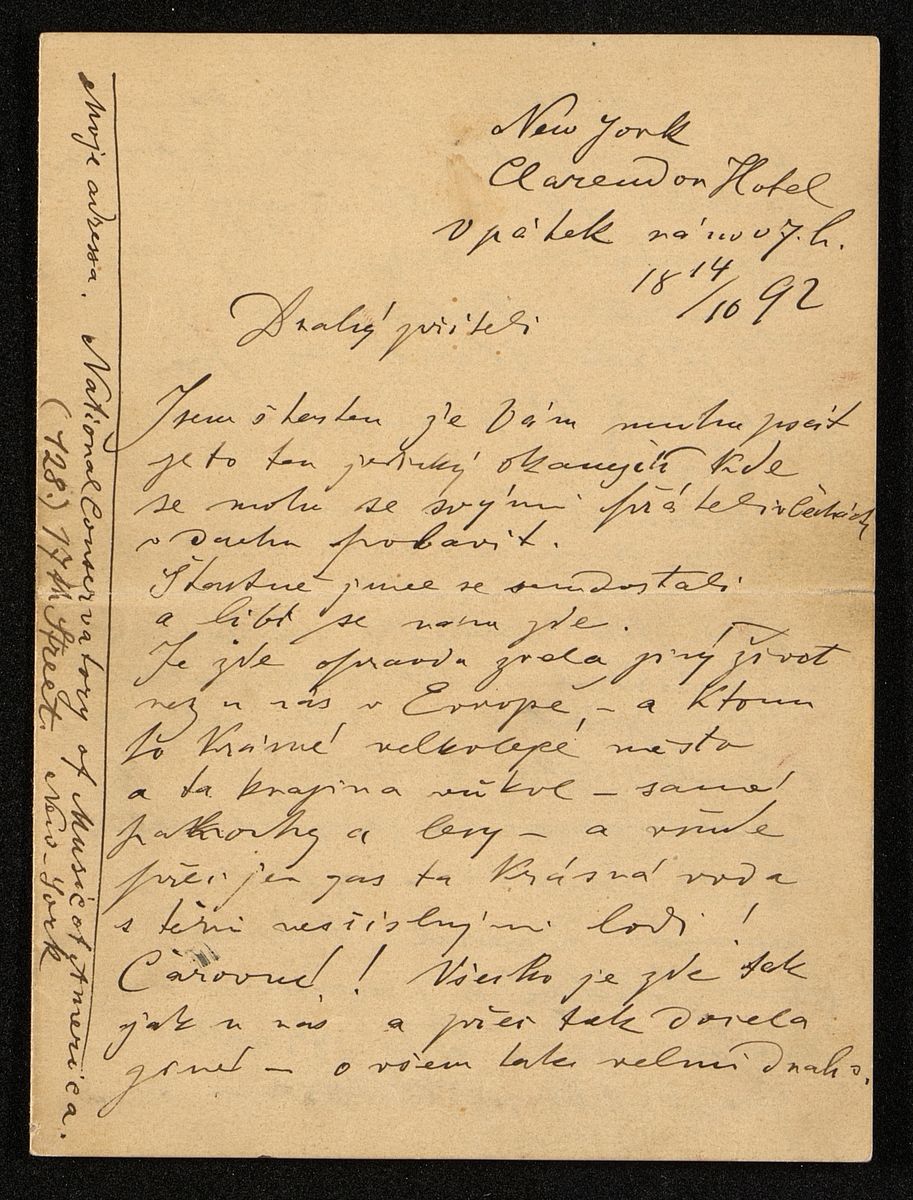 New York
Clarendon Hotel
v pátek ráno v 7. h.
18 14/10 92
Drahý příteli
Jsem šťasten že Vám mohu psát
je to ten jediný okamžik kde
se mohu se svými přáteli v Čechách
v duchu pobavit.
Šťastně jsme se sem dostali
a líbí se nám zde.
Je zde opravdu zcela jiný život
než u nás v Evropě, – a k tomu
to krásné velkolepé město
a ta krajina vůkol – samé
pahorky a lesy – a všude
přeci jen zas ta krásná voda
s těmi nesčíslnými lodi!
Čarovné! Všecko je zde tak
jak u nás a přec tak docela
jiné – ovšem také velmi draho.
Moje adressa. National Conservatory of Music of America.
(128.) 17th Street. New-York